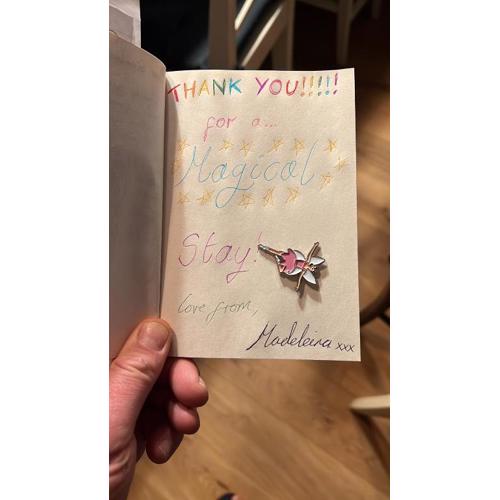 THANK YOU!!!!!
for a...
Magical
Stay!
love from,
Madeleina xxx